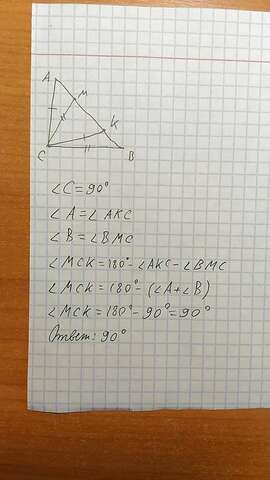 A
M
K
C
B
∠C = 90°
∠A = ∠AKC
∠B = ∠BMC
∠MCK = 180° - ∠AKC - ∠BMC
∠MCK = 180° - (∠A + ∠B)
∠MCK = 180° - 90° = 90°
Ответ: 90°